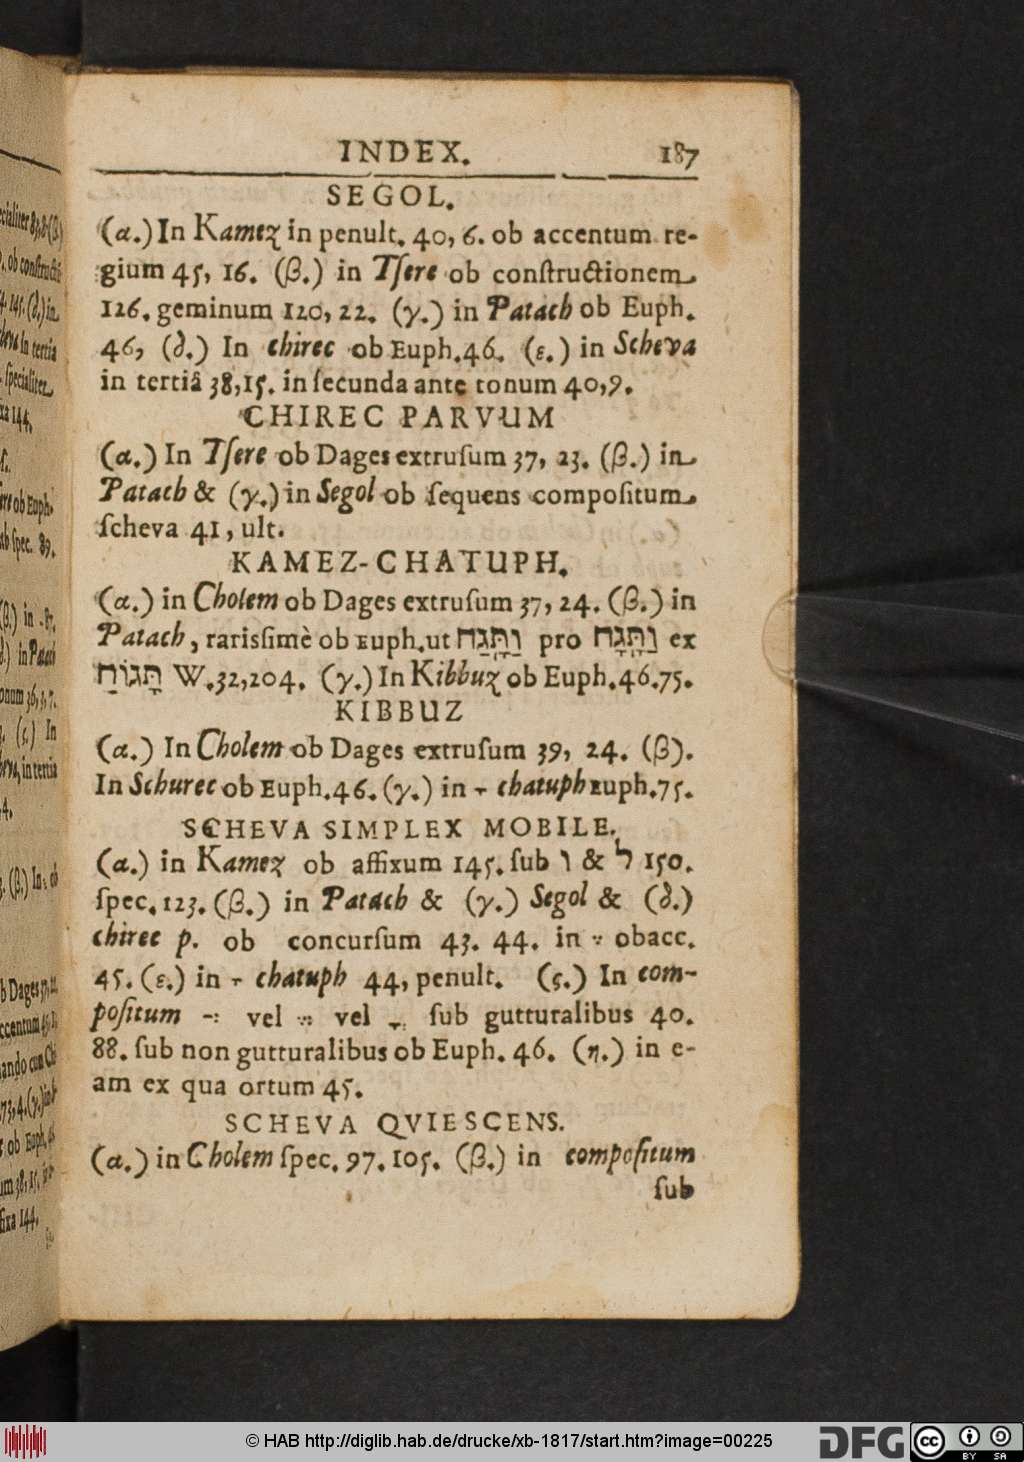 INDEX. 187
SEGOL.
(α.) In Kamez in penult. 40, 6. ob accentum re-
gium 45, 16. (β.) in Tſere ob conſtructionem
126. geminum 120, 22. (γ.) in Patach ob Euph.
46, (δ.) In chirec ob Euph. 46. (ε.) in Scheva
in tertiâ 38, 15. in ſecunda ante tonum 40, 9.
CHIREC PARVUM
(α.) In Tſere ob Dages extruſum 37, 23. (β.) in
Patach & (γ.) in Segol ob ſequens compoſitum
ſcheva 41, ult.
KAMEZ-CHATUPH.
(α.) in Cholem ob Dages extruſum 37, 24. (β.) in
Patach, rariſſimè ob Euph. ut וַתָּגַח pro וַתָּגָח ex
תָּגוֹחַ W. 32, 204. (γ.) In Kibbuz ob Euph. 46. 75.
KIBBUZ
(α.) In Cholem ob Dages extruſum 39, 24. (β).
In Schurec ob Euph. 46. (γ.) in ־ chatuph Euph. 75.
SCHEVA SIMPLEX MOBILE.
(α.) in Kamez ob affixum 145. ſub ו & ל 150.
ſpec. 123. (β.) in Patach & (γ.) Segol & (δ.)
chirec p. ob concurſum 43. 44. in ֶ ob acc.
45. (ε.) in ־ chatuph 44, penult. (ς.) In com-
poſitum ֲ vel ֱ vel ֳ ſub gutturalibus 40.
88. ſub non gutturalibus ob Euph. 46. (η.) in e-
am ex qua ortum 45.
SCHEVA QVIESCENS.
(α.) in Cholem ſpec. 97. 105. (β.) in compoſitum
ſub
© HAB http://diglib.hab.de/drucke/xb-1817/start.htm?image=00225
DFG
cc BY SA